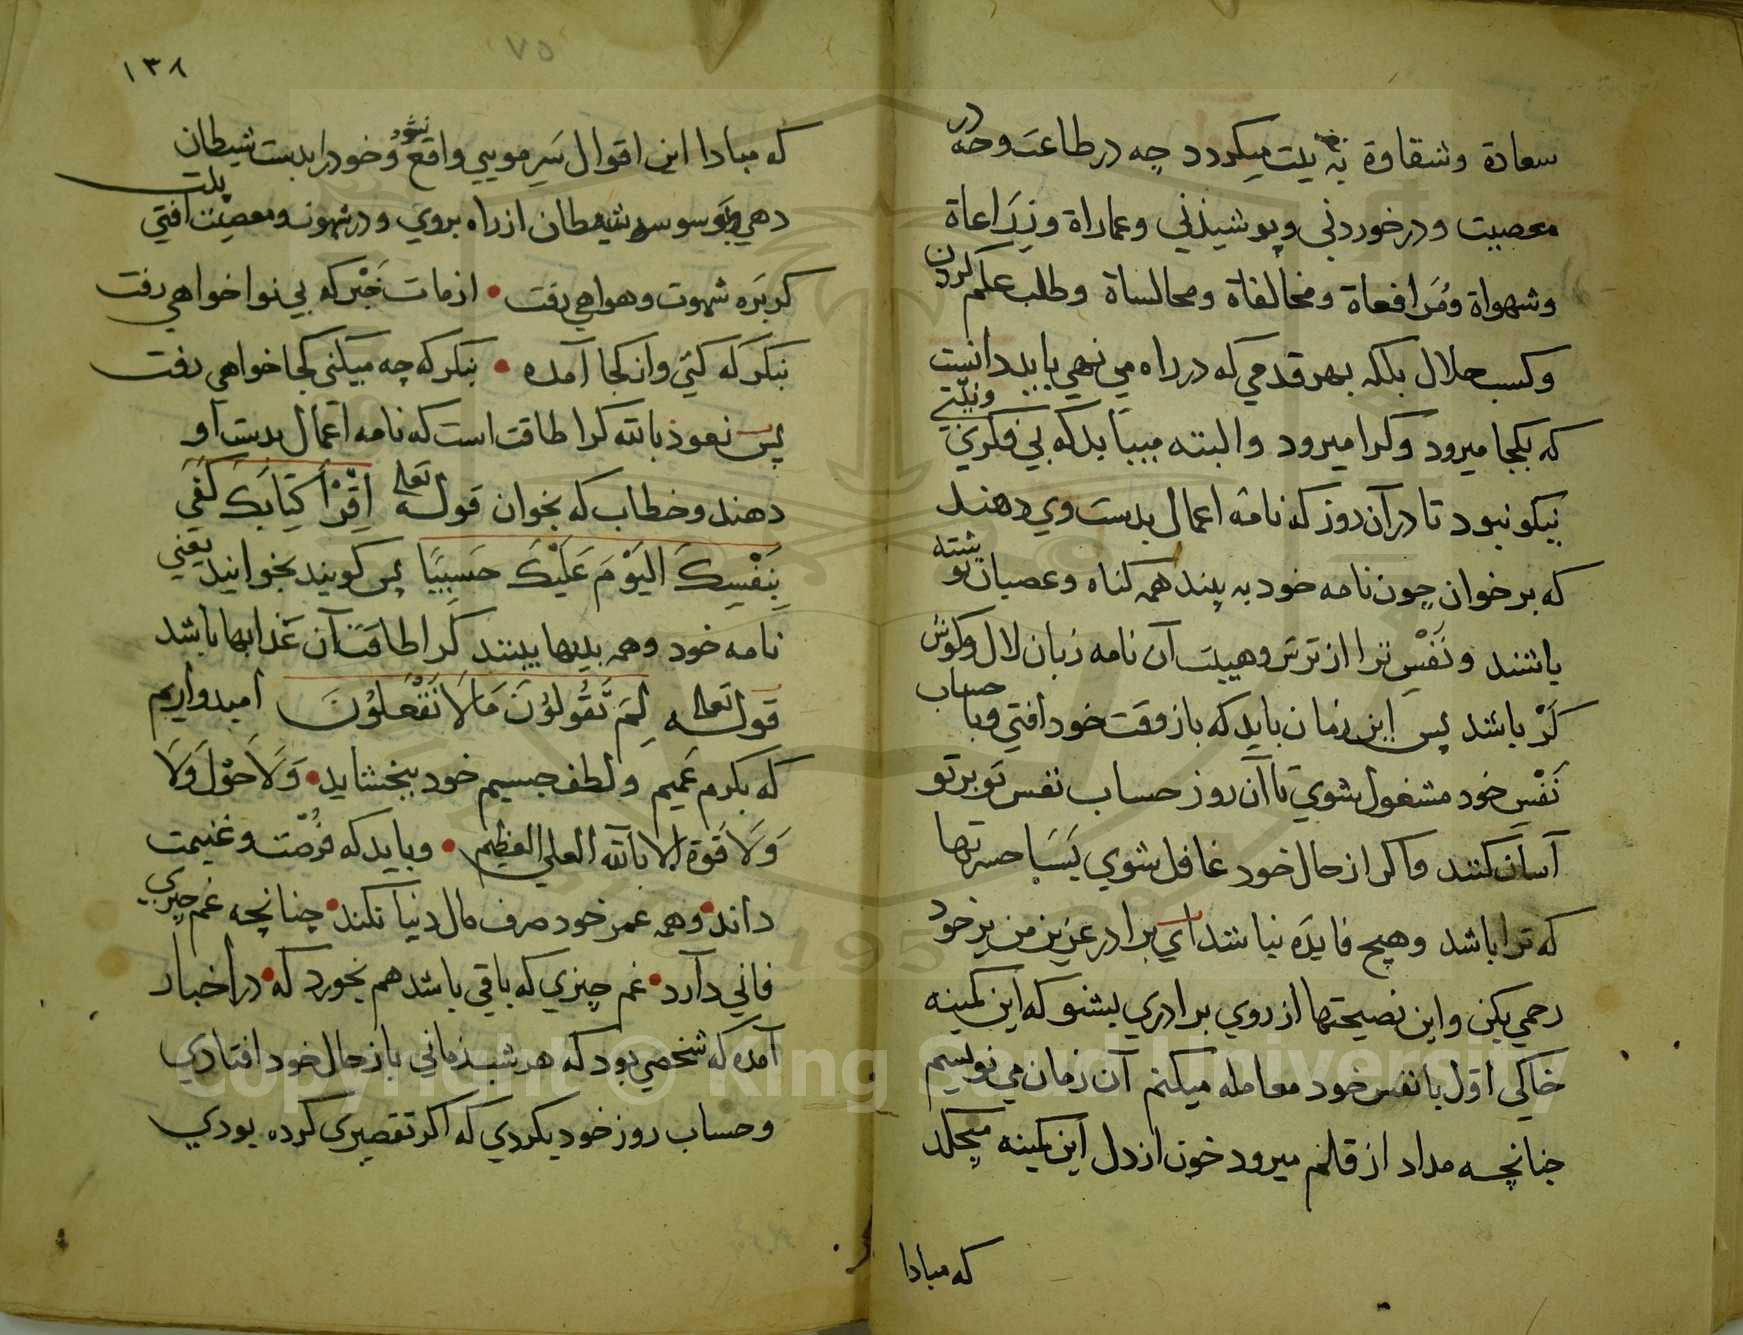 سعادة وشقاوة به نیت میکردد چه در طاعت وچه در
معصیت ودرخوردنی وپوشیدنی وعماراة وزراعاة
وشهواة ومرافعاة ومخالفاة ومجالساة وطلب علم کردن
وکسب حلال بلکه بهر قدمی که در راه می نهی باید دانست
که بکجا میرود وکرا میرود والبته میباید که بی فکری ونیتی
نیکو نبود تا در آن روز که نامه اعمال بدست وی دهند
که برخوان چون نامه خود به بیند همه کناه وعصیان نوشته
باشند ونَفْسِ ترا از ترس وهیبت آن نامه زبان لال وکوش
کَرْ باشد پس این زمان باید که باز وقت خود افتی وبا حساب
نَفْسِ خود مشغول شوی تا آن روز حساب نفس تو بر تو
آسان کنند واکر از حال خود غافل شوی بَسَا حسرتها
که ترا باشد وهیچ فایده نباشد ای برادر عزیز من بر خود
رحمی بکن واین نصیحتها از روی برادری بشنو که این کمینه
خاکی اوّل با نفس خود معامله میکنم آن زمان می نویسم
چنانچه مداد از قلم میرود خون از دل این کمینه میچکد
که مبادا
١٣٨
٧٥
که مبادا این اقوال سَرِ مویی واقع نشود وخود را بدست شیطان پلت
دهی وبوسوسه شیطان از راه بروی ودر شهوت ومعصیت افتی
کر بَره شهوت وهوا می رفت • از مات خَبَر که بی نوا خواهی رفت
بنکر که کئی واز کجا آمده • بنکر که چه میکنی کجا خواهی رفت
پس نعوذ بالله کرا طاقت است که نامه اعمال بدست او
دهند وخطاب که بخوان قوله تعالی اِقْرَأْ کِتَابَکَ کَفَی
بِنَفْسِکَ الْیَوْمَ عَلَیْکَ حَسِیبًا پس کویند بخوانید یعنی
نامه خود وهمه بدیها ببینند کرا طاقت آن عذابها باشد
قوله تعالی لِمَ تَقُولُونَ مَا لَا تَفْعَلُونَ امیدواریم
که بکرم عَمیم ولطف جسیم خود ببخشاید • وَلَا حَوْلَ وَلَا
وَلَا قُوَّةَ اِلَّا بِاللّٰه العلی العظیم • وباید که فُرصت وغنیمت
داند • وهمه عمر خود صرف مال دنیا نکند • چنانچه غم چیزی
فانی دارد • غم چیزی که باقی باشد هم بخورد که • در اخبار
آمده که شخصی بود که هر شب زمانی باز حال خود افتادی
وحساب روز خود بکردی که اکر تقصیری کرده بودی
Copyright © King Saud University
1957